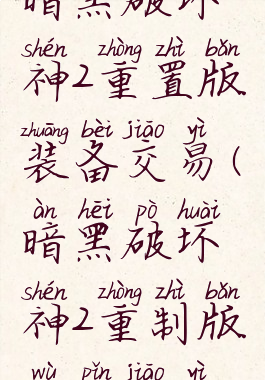 暗黑破坏
shén zhòng zhì bǎn
神2重置版
zhuāng bèi jiāo yì
装备交易(
àn hēi pò huài
暗黑破坏
shén zhòng zhì bǎn
神2重制版
wù pǐn jiāo yì